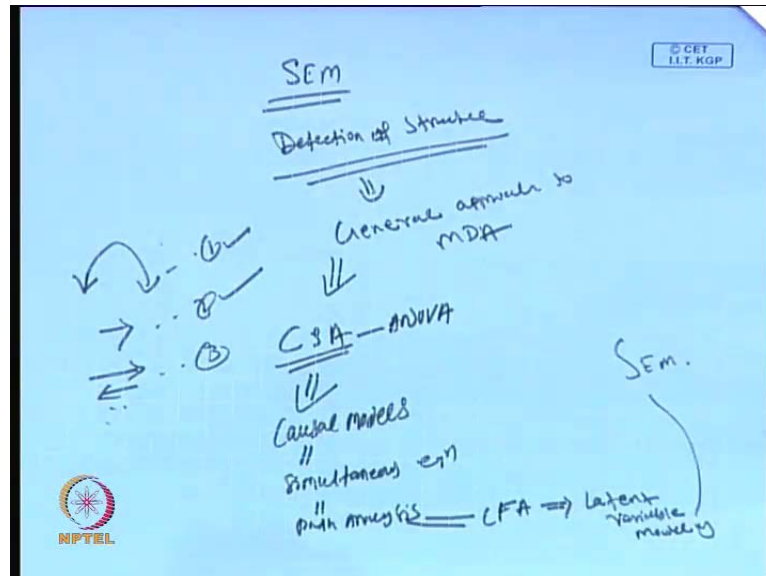 SEM
© CET
I.I.T. KGP
Detection of Structure
General approach to
MDA
①
②
③
CSA — ANOVA
SEM.
Causal models
Simultaneous eqn
path analysis — CFA ⇒ Latent
variable
modeling
NPTEL